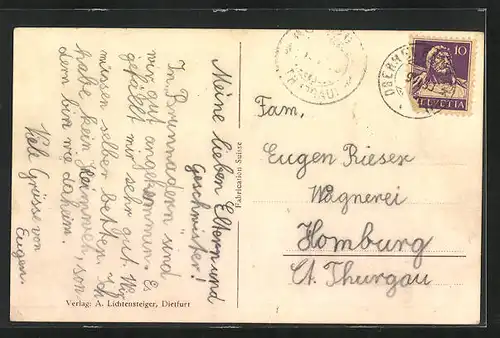 Meine lieben Eltern und
Geschwister!
In Brunnadern sind
wir gut angekommen. Es
gefällt mir sehr gut. Wir
müssen selber betten. Ich
habe kein Heimweh, son
dern bin wie daheim.
Viele Grüsse von
Eugen.
Verlag: A. Lichtensteiger, Dietfurt
Fabrication Suisse
HOMBURG
(THURGAU)
10
HELVETIA
Fam.
Eugen Rieser
Wagnerei
Homburg
Ct. Thurgau